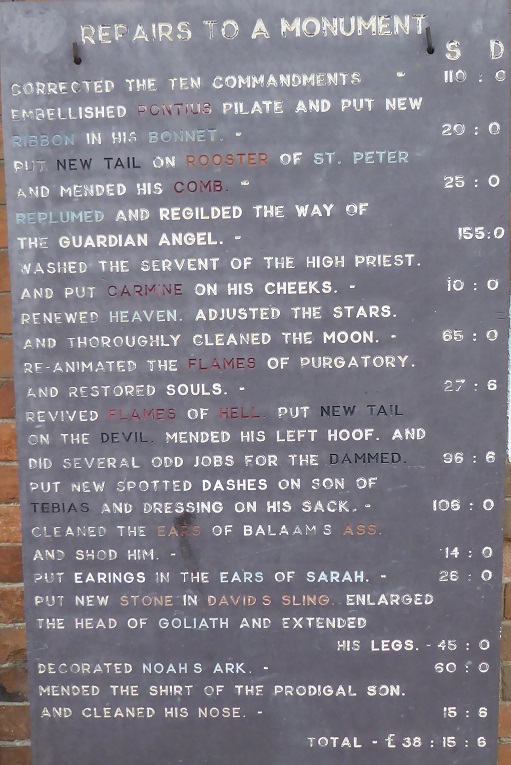 REPAIRS TO A MONUMENT
S D
CORRECTED THE TEN COMMANDMENTS - 110 : 0
EMBELLISHED PONTIUS PILATE AND PUT NEW
RIBBON IN HIS BONNET. - 20 : 0
PUT NEW TAIL ON ROOSTER OF ST. PETER
AND MENDED HIS COMB. - 25 : 0
REPLUMED AND REGILDED THE WAY OF
THE GUARDIAN ANGEL. - 155:0
WASHED THE SERVENT OF THE HIGH PRIEST.
AND PUT CARMINE ON HIS CHEEKS. - 10 : 0
RENEWED HEAVEN. ADJUSTED THE STARS.
AND THOROUGHLY CLEANED THE MOON. - 65 : 0
RE-ANIMATED THE FLAMES OF PURGATORY.
AND RESTORED SOULS. - 27 : 6
REVIVED FLAMES OF HELL. PUT NEW TAIL
ON THE DEVIL. MENDED HIS LEFT HOOF. AND
DID SEVERAL ODD JOBS FOR THE DAMMED. 96 : 6
PUT NEW SPOTTED DASHES ON SON OF
TEBIAS AND DRESSING ON HIS SACK. - 106 : 0
CLEANED THE EARS OF BALAAM'S ASS.
AND SHOD HIM. - 14 : 0
PUT EARINGS IN THE EARS OF SARAH. - 26 : 0
PUT NEW STONE IN DAVID'S SLING. ENLARGED
THE HEAD OF GOLIATH AND EXTENDED
HIS LEGS. - 45 : 0
DECORATED NOAH'S ARK. - 60 : 0
MENDED THE SHIRT OF THE PRODIGAL SON.
AND CLEANED HIS NOSE. - 15 : 6
TOTAL - £ 38 : 15 : 6